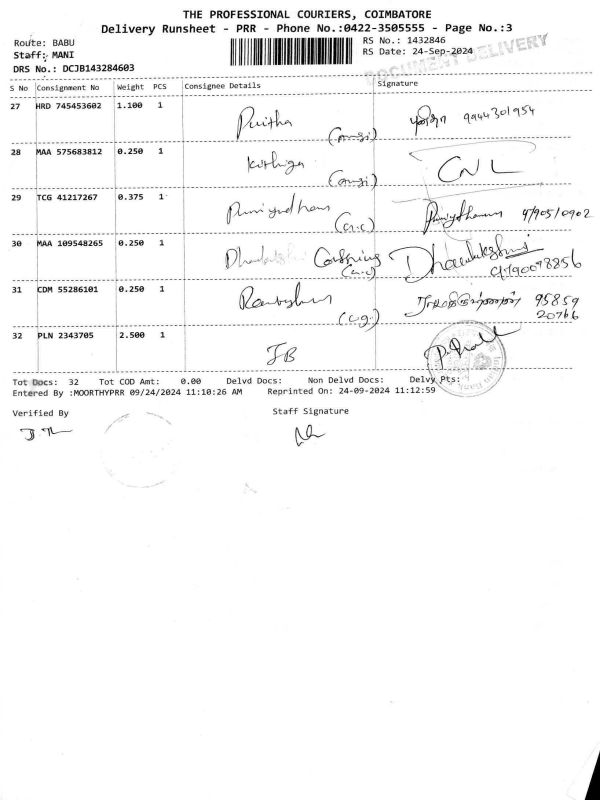 THE PROFESSIONAL COURIERS, COIMBATORE
Delivery Runsheet - PRR - Phone No.:0422-3505555 - Page No.:3
Route: BABU
RS No.: 1432846
Staff: MANI
RS Date: 24-Sep-2024
DOCUMENT DELIVERY
DRS No.: DCJB143284603
S No Consignment No Weight PCS Consignee Details Signature
27 HRD 745453602 1.100 1 9944301954
28 MAA 575683812 0.250 1 CNL
29 TCG 41217267 0.375 1
30 MAA 109548265 0.250 1 Dhanalakshmi
31 CDM 55286101 0.250 1 95859
20766
32 PLN 2343705 2.500 1 JB
Tot Docs: 32 Tot COD Amt: 0.00 Delvd Docs: Non Delvd Docs: Delvy Pts:
Entered By :MOORTHYPRR 09/24/2024 11:10:26 AM Reprinted On: 24-09-2024 11:12:59
Verified By Staff Signature